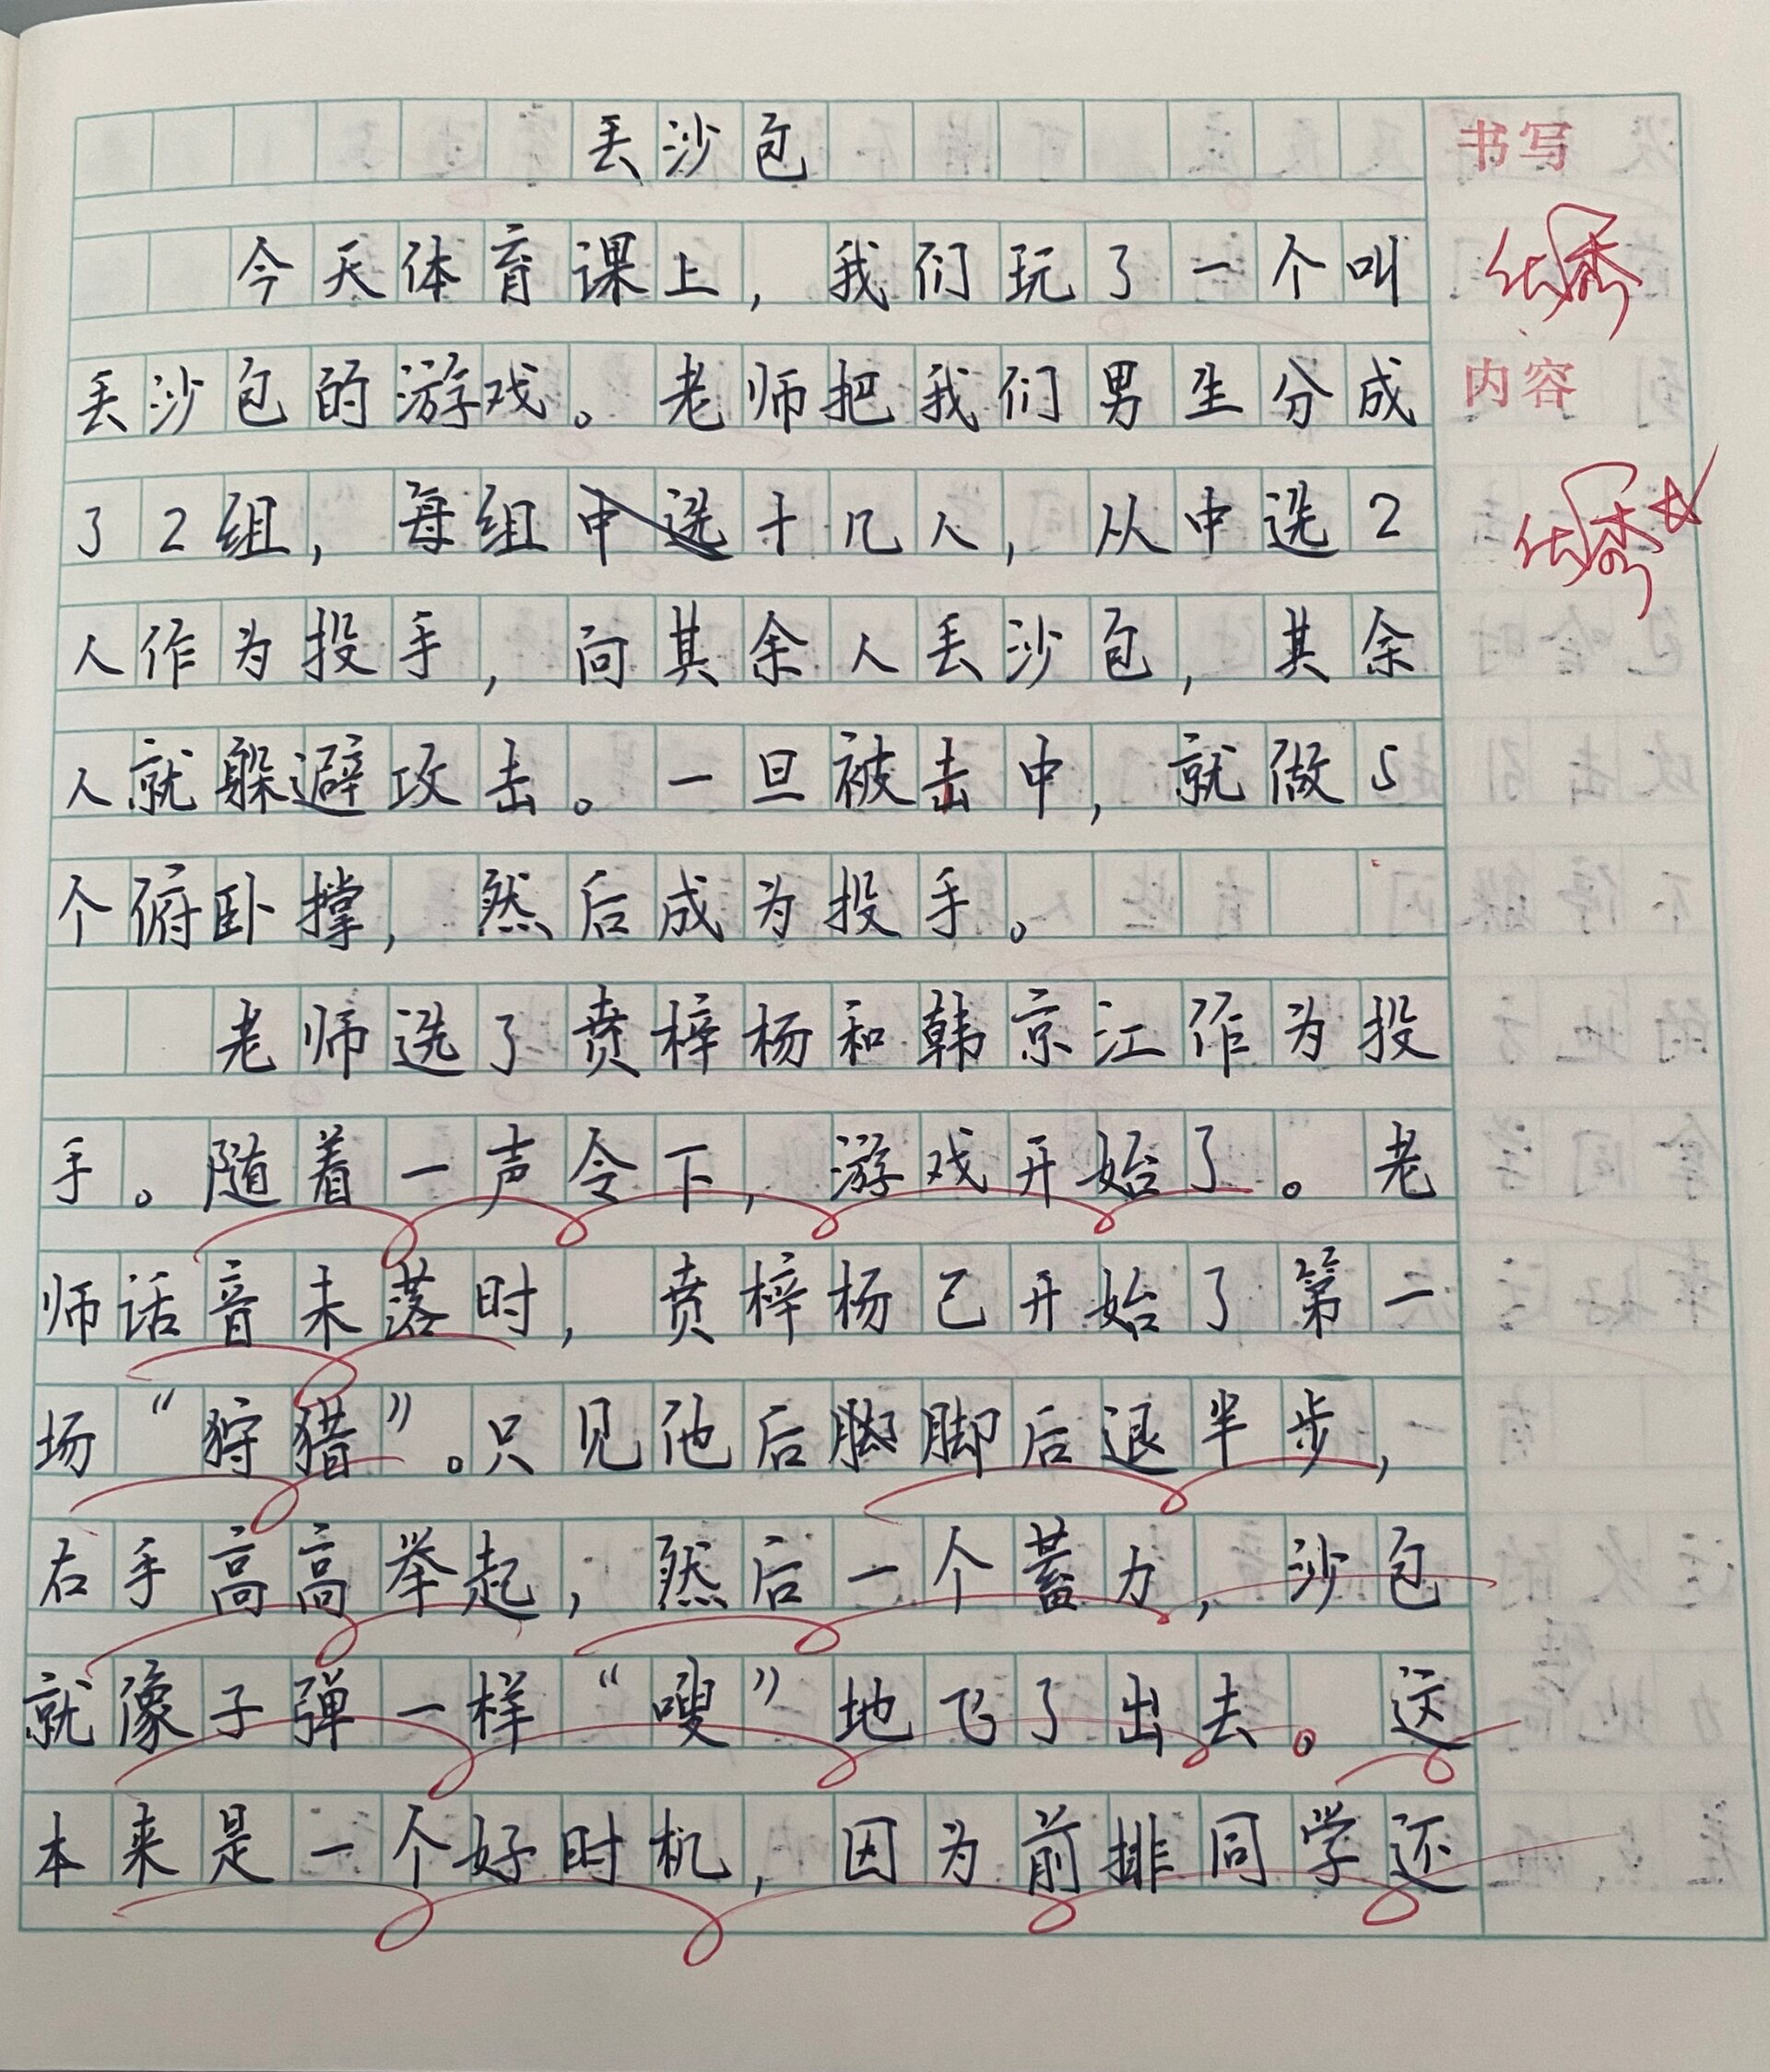 丢沙包
书写
今天体育课上，我们玩了一个叫
优秀
丢沙包的游戏。老师把我们男生分成
内容
了2组，每组中选十几人，从中选2
优秀☆
人作为投手，向其余人丢沙包，其余
人就躲避攻击。一旦被击中，就做5
个俯卧撑，然后成为投手。
老师选了贲梓杨和韩京江作为投
手。随着一声令下，游戏开始了。老
师话音未落时，贲梓杨已开始了第一
场“狩猎”。只见他后脚脚后退半步，
右手高高举起，然后一个蓄力，沙包
就像子弹一样“嗖”地飞了出去。这
本来是一个好时机，因为前排同学还